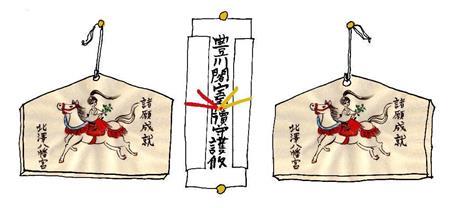 諸願成就
北澤八幡宮
豊川閣寳牘守護攸
諸願成就
北澤八幡宮